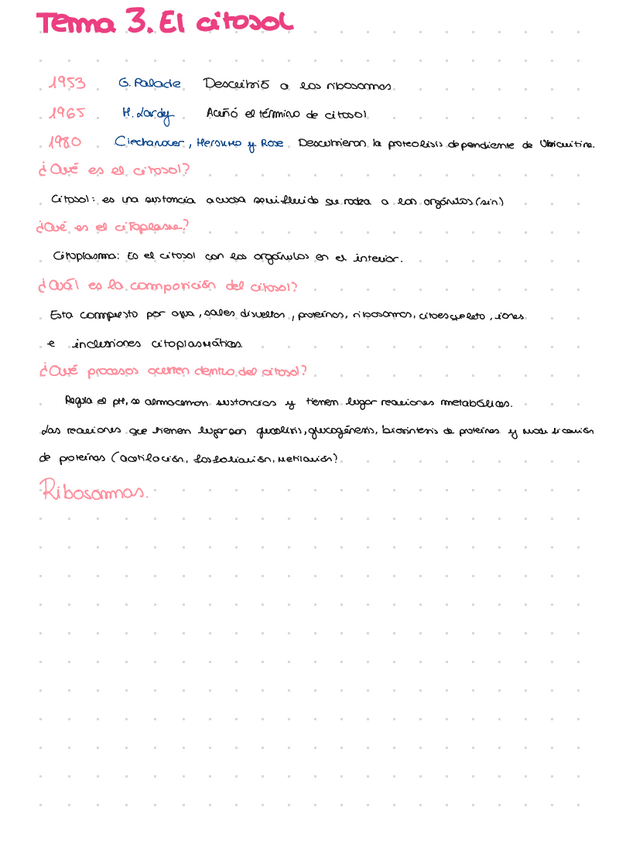 Tema 3. El citosol
1953 G. Palade Descubrió a los ribosomas.
1965 H. Lardy Acuñó el término de citosol
1980 Ciechanover, Hershko y Rose. Descubrieron la proteolisis dependiente de Ubicuitina.
¿Qué es el citosol?
Citosol: es una sustancia acuosa semifluida que rodea a los orgánulos (sin)
¿Qué es el citoplasma?
Citoplasma: Es el citosol con los orgánulos en el interior.
¿Cuál es la composición del citosol?
Esta compuesto por agua, sales disueltas, proteínas, ribosomas, citoesqueleto, iones
e inclusiones citoplasmáticas
¿Qué procesos ocurren dentro del citosol?
Regula el pH, se almacenan sustancias y tienen lugar reacciones metabólicas.
Las reacciones que tienen lugar son glucolisis, glucogénesis, biosíntesis de proteínas y modificación
de proteínas (acetilación, fosforilación, metilación).
Ribosomas.